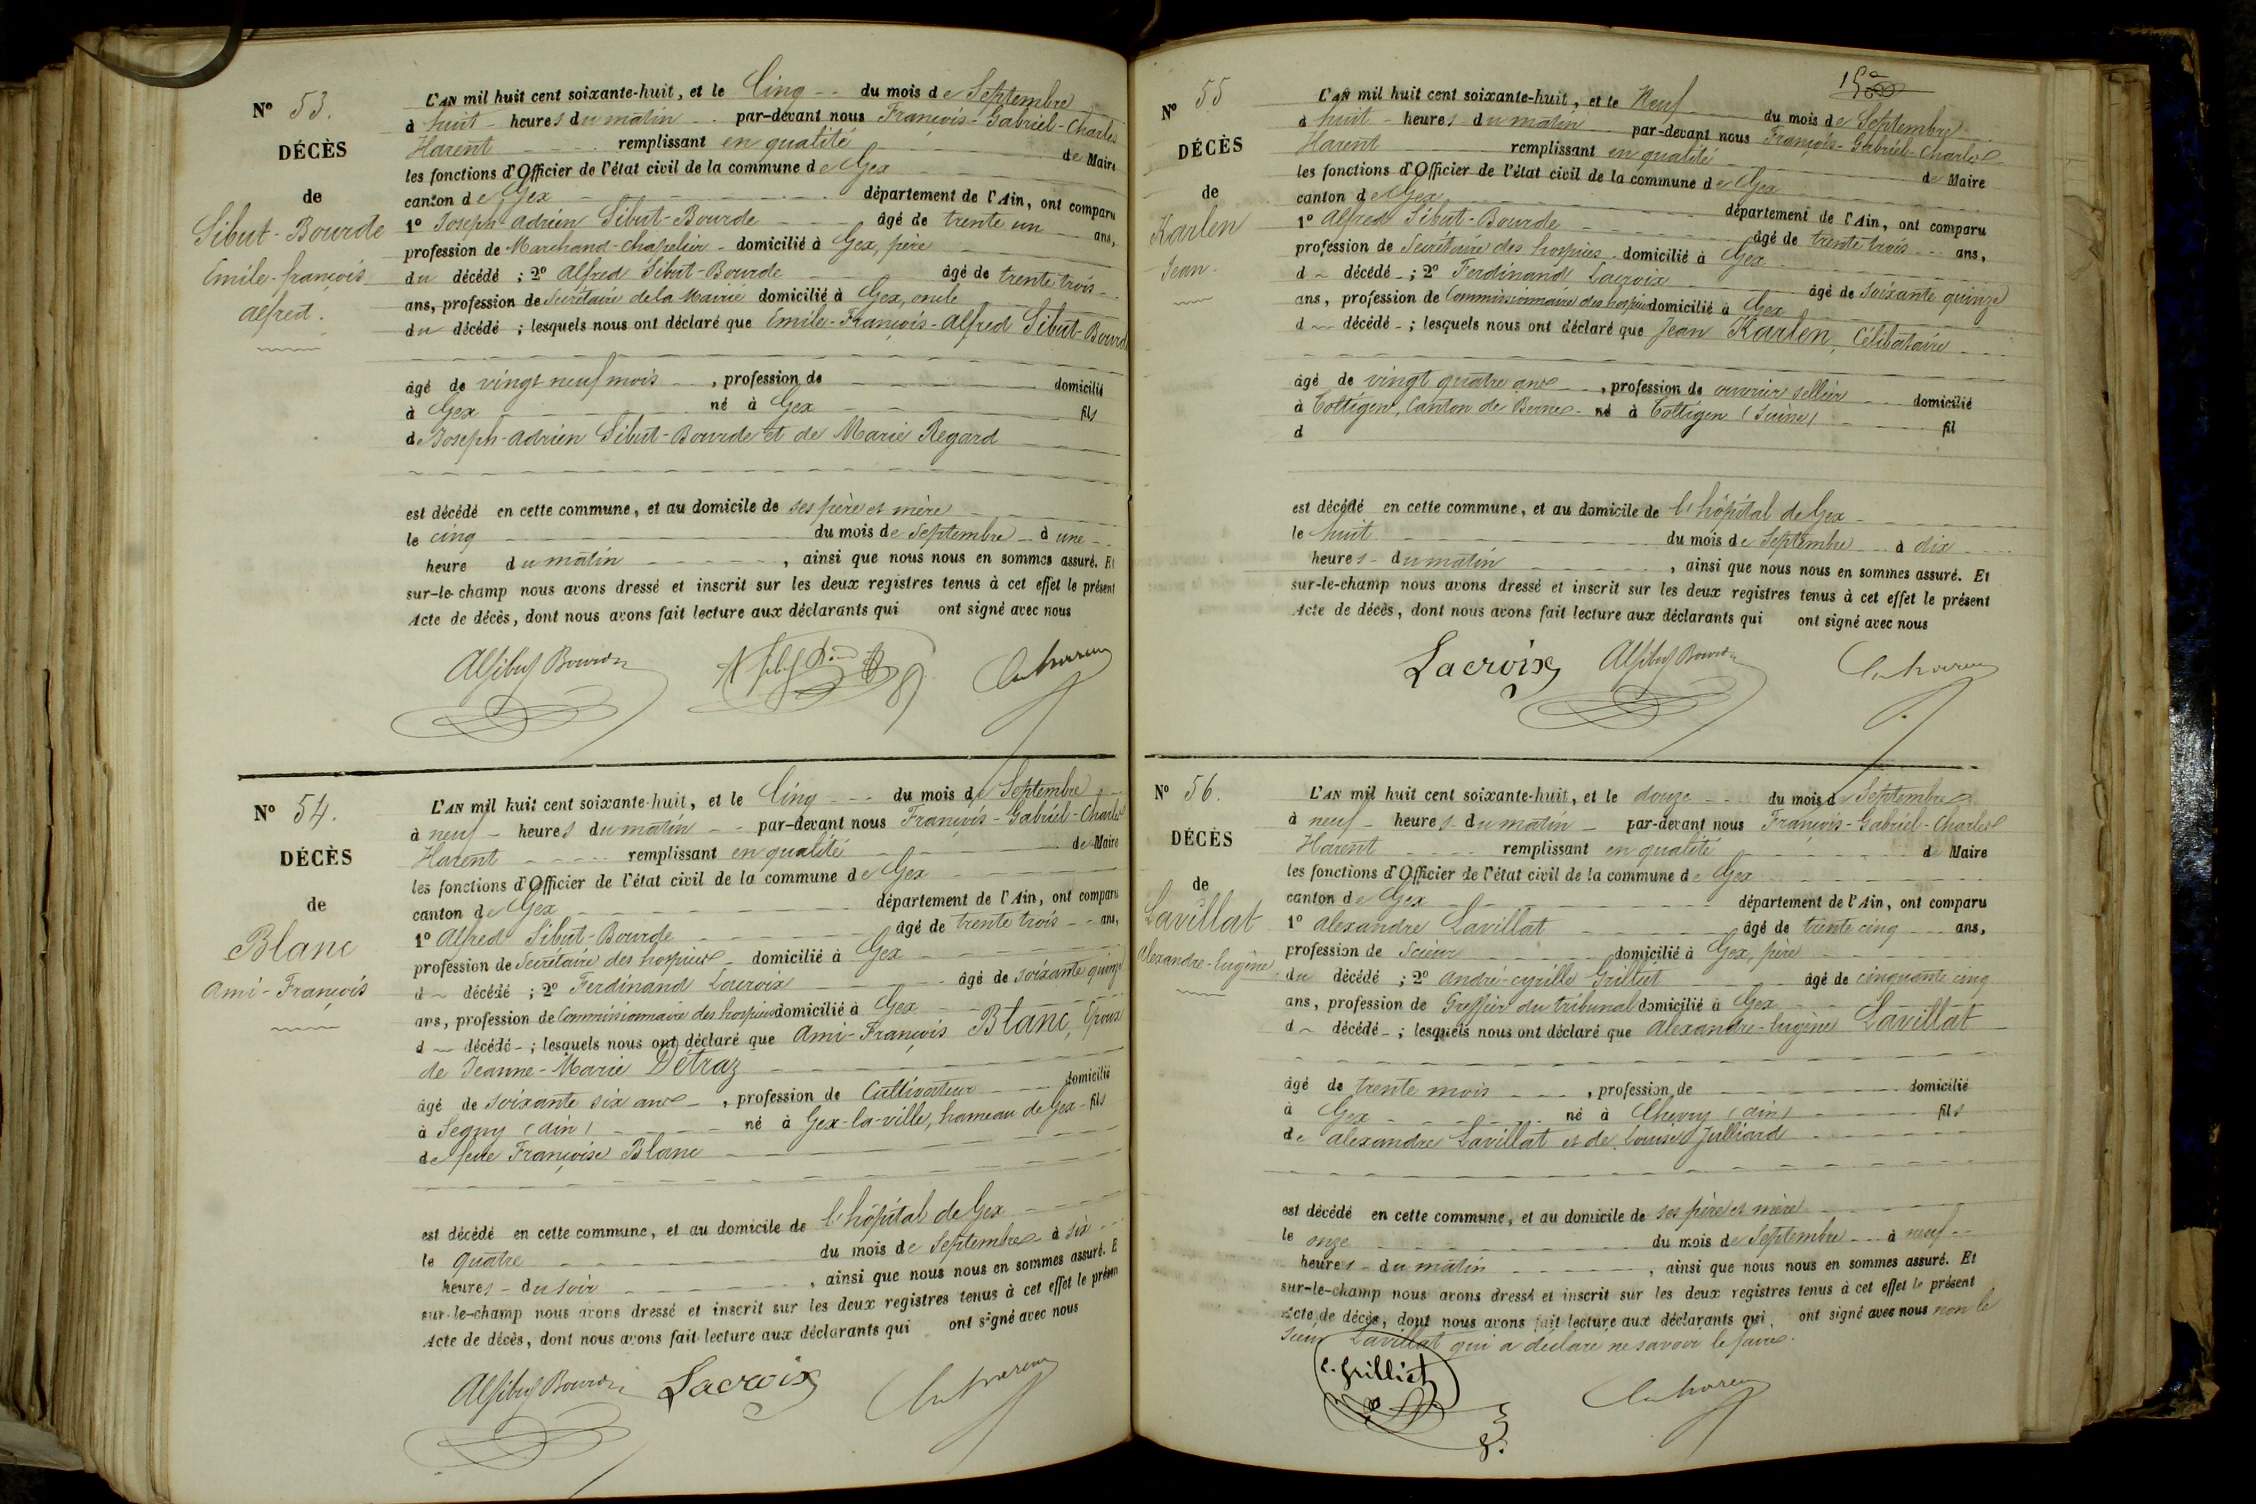 N° 53.
DÉCÈS
de
Sibut-Bourde
Emile-françois
alfred.
L'AN mil huit cent soixante-huit, et le Cinq -- du mois de Septembre
à huit - heures du matin - par-devant nous François-Gabriel-Charles
Harent - remplissant en qualité - de Maire
les fonctions d'Officier de l'état civil de la commune de Gex
canton de Gex - département de l'Ain, ont comparu
1° Joseph-adrien Sibut-Bourde - âgé de trente un - ans,
profession de Marchand-chapelier - domicilié à Gex, père
du décédé ; 2° Alfred Sibut-Bourde - âgé de trente trois -
ans, profession de Secrétaire de la Mairie domicilié à Gex, oncle
du décédé ; lesquels nous ont déclaré que Emile-François-alfred Sibut-Bourde
âgé de vingt neuf mois -, profession de - domicilié
à Gex - né à Gex - fils
de Joseph-adrien Sibut-Bourde et de Marie Regard
est décédé en cette commune, et au domicile de ses père et mère
le cinq - du mois de Septembre - à une -
heure du matin -, ainsi que nous nous en sommes assuré. Et
sur-le-champ nous avons dressé et inscrit sur les deux registres tenus à cet effet le présent
Acte de décès, dont nous avons fait lecture aux déclarants qui ont signé avec nous
N° 54.
DÉCÈS
de
Blanc
Ami-François
L'AN mil huit cent soixante-huit, et le Cinq --- du mois de Septembre
à neuf - heures du matin -- par-devant nous François-Gabriel-Charles
Harent - remplissant en qualité - de Maire
les fonctions d'Officier de l'état civil de la commune de Gex
canton de Gex - département de l'Ain, ont comparu
1° Alfred Sibut-Bourde - âgé de trente trois -- ans,
profession de Secrétaire des hospices - domicilié à Gex
d~ décédé ; 2° Ferdinand Lacroix - âgé de soixante quinze
ans, profession de Commissionnaire des hospices domicilié à Gex
d~ décédé - ; lesquels nous ont déclaré que Ami-François Blanc, Epoux
de Jeanne-Marie Détraz
âgé de soixante six ans -, profession de Cultivateur - domicilié
à Segny (ain) - né à Gex-la-ville, hameau de Gex - fils
de feue Françoise Blanc
est décédé en cette commune, et au domicile de l'hôpital de Gex
le quatre - du mois de Septembre - à six -
heures - du soir -, ainsi que nous nous en sommes assuré. E
sur-le-champ nous avons dressé et inscrit sur les deux registres tenus à cet effet le présen
Acte de décès, dont nous avons fait lecture aux déclarants qui ont signé avec nous
Lacroix
N° 55
DÉCÈS
de
Karlen
Jean.
L'AN mil huit cent soixante-huit, et le Neuf du mois de Septembre
à huit - heures du matin par-devant nous François-Gabriel-Charles
Harent remplissant en qualité - de Maire
les fonctions d'Officier de l'état civil de la commune de Gex
canton de Gex - département de l'Ain, ont comparu
1° Alfred Sibut-Bourde - âgé de trente trois -- ans,
profession de Secrétaire des hospices - domicilié à Gex
d~ décédé - ; 2° Ferdinand Lacroix - âgé de soixante quinze
ans, profession de Commissionnaire des hospices domicilié à Gex
d~ décédé - ; lesquels nous ont déclaré que Jean Karlen, Célibataire
âgé de vingt quatre ans -, profession de ouvrier sellier - domicilié
à Boltigen, Canton de Berne - né à Boltigen (Suisse) - fil
d
est décédé en cette commune, et au domicile de l'hôpital de Gex
le huit - du mois de Septembre - à dix
heures - du matin -, ainsi que nous nous en sommes assuré. Et
sur-le-champ nous avons dressé et inscrit sur les deux registres tenus à cet effet le présent
Acte de décès, dont nous avons fait lecture aux déclarants qui ont signé avec nous
Lacroix
N° 56.
DÉCÈS
de
Lavillat
Alexandre-Eugène
L'AN mil huit cent soixante-huit, et le douze - du mois de Septembre
à neuf - heures du matin - par-devant nous François-Gabriel-Charles
Harent - remplissant en qualité - de Maire
les fonctions d'Officier de l'état civil de la commune de Gex
canton de Gex - département de l'Ain, ont comparu
1° alexandre Lavillat - âgé de trente cinq - ans,
profession de Scieur - domicilié à Gex, père
du décédé ; 2° andré-cyrille Grilliet - âgé de cinquante cinq
ans, profession de Greffier du tribunal domicilié à Gex
d~ décédé - ; lesquels nous ont déclaré que alexandre-Eugène Lavillat
âgé de trente mois -, profession de - domicilié
à Gex - né à Chevry (ain) - fils
de alexandre Lavillat et de Louise Julliard
est décédé en cette commune, et au domicile de ses père et mère
le onze - du mois de Septembre - à neuf --
heures - du matin -, ainsi que nous nous en sommes assuré. Et
sur-le-champ nous avons dressé et inscrit sur les deux registres tenus à cet effet le présent
Acte de décès, dont nous avons fait lecture aux déclarants qui, ont signé avec nous non le
sieur Lavillat qui a déclaré ne savoir le faire.
C. Grilliet